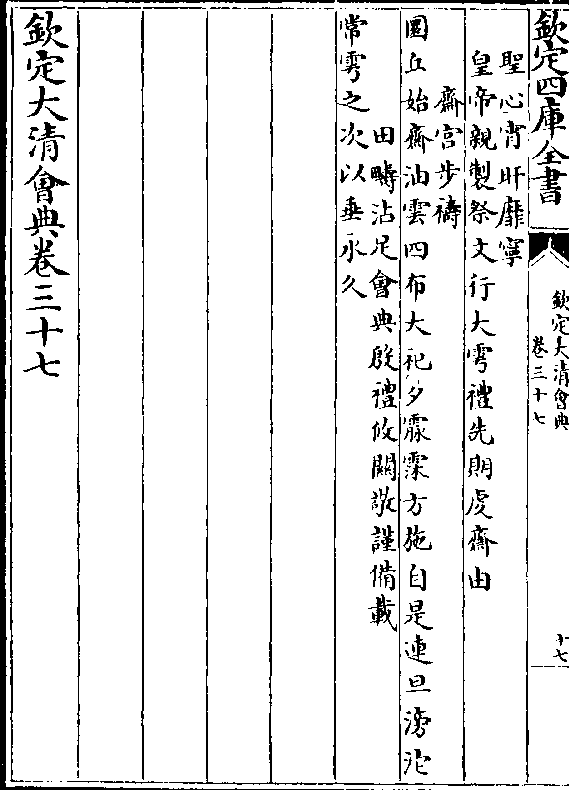 欽定四庫全書
欽定大清會典
卷三十七
十七
聖心宵旰靡寧
皇帝親製祭文行大雩禮先期虔齋由
齋宮步禱
圜丘始齋油雲四布大祀夕霡霂方施自是連旦滂沱
田疇沾足會典殷禮攸關敬謹備載
常雩之次以垂永久
欽定大清會典卷三十七